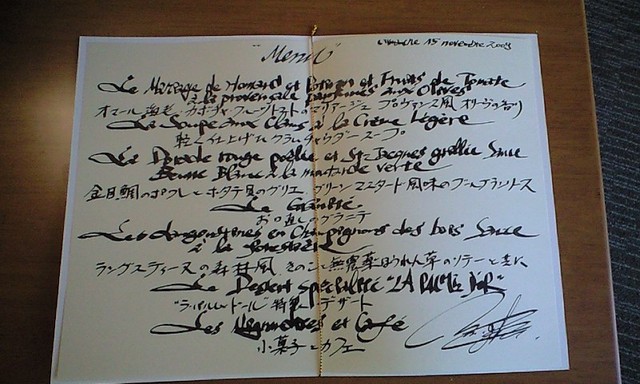 "Menu"
15 novembre 2009
Le Mariage de Homard et Potiron et Fruits de Tomate
à la provençale parfumés aux Olives
オマール海老 カボチャ フルーツトマトのマリアージュ プロヴァンス風 オリーヴの香り
La Soupe aux Clams à la Crème Légère
軽く仕上げた クラムチャウダースープ
La Dorade rouge poêlée et St-Jacques grillée Sauce
Beurre Blanc à la moutarde verte
金目鯛のポワレとホタテ貝のグリエ グリーンマスタード風味のブールブランソース
Le Granité
お口直しのグラニテ
Les Langoustines en Champignons des bois Sauce
à la Forestière
ラングスティーヌの森林風 きのこと無農薬ほうれん草のソテーと共に
Le Dessert Spécialité "LA PALME D'OR"
"ラ・パルム・ドール" 特製 デザート
Les Mignardises et Café
小菓子とカフェ